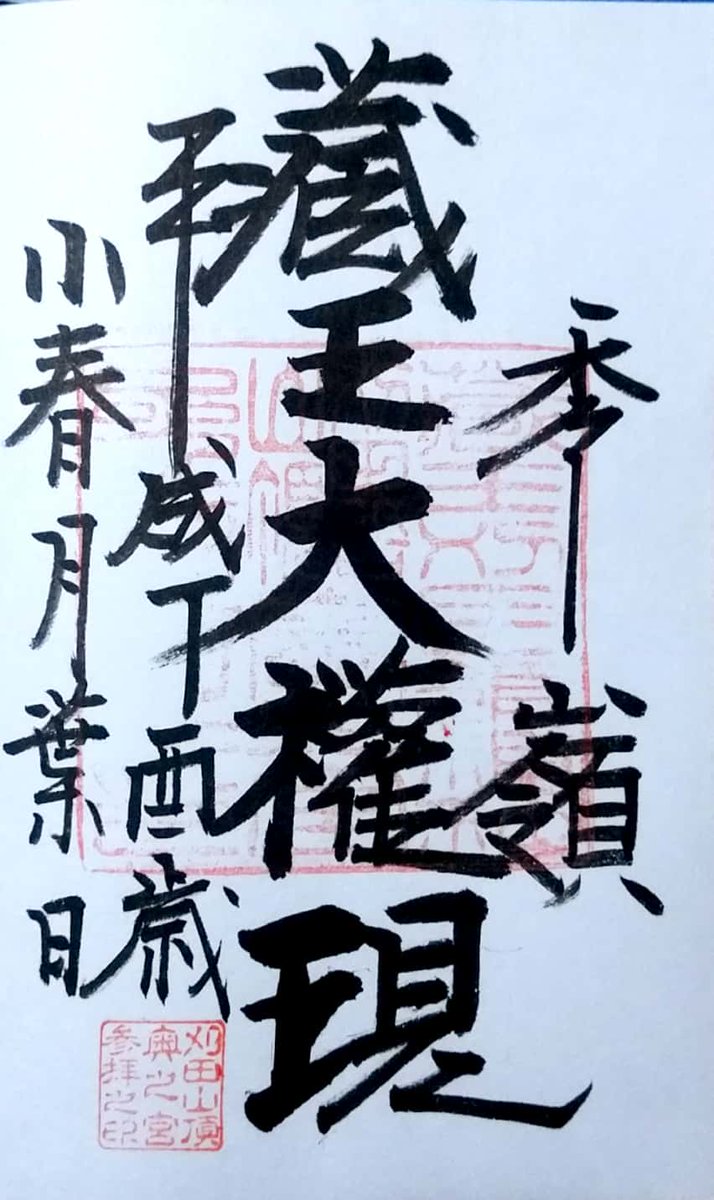 秀嶺
藏王大權現
平成丁酉歳
小春月葉日
刈田山頂
奥之宮
参拝之印